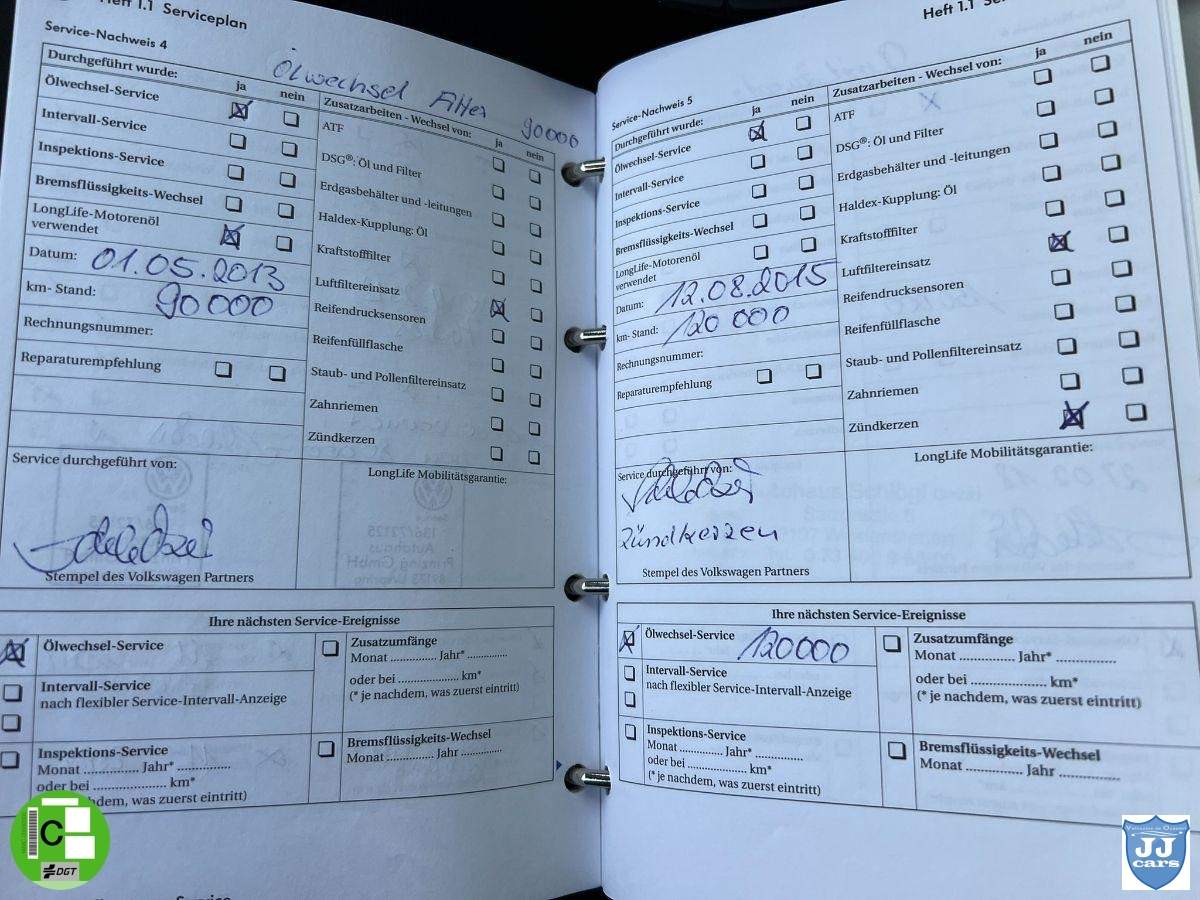 Heft 1.1 Serviceplan
Service-Nachweis 4
Ölwechsel Filter 90000
Durchgeführt wurde: ja nein
Ölwechsel-Service
Intervall-Service
Inspektions-Service
Bremsflüssigkeits-Wechsel
LongLife-Motorenöl
verwendet
Datum: 01.05.2013
km- Stand: 90000
Rechnungsnummer:
Reparaturempfehlung
Zusatzarbeiten - Wechsel von: ja nein
ATF
DSG®: Öl und Filter
Erdgasbehälter und -leitungen
Haldex-Kupplung: Öl
Kraftstofffilter
Luftfiltereinsatz
Reifendrucksensoren
Reifenfüllflasche
Staub- und Pollenfiltereinsatz
Zahnriemen
Zündkerzen
Service durchgeführt von:
LongLife Mobilitätsgarantie:
Stempel des Volkswagen Partners
Ihre nächsten Service-Ereignisse
Ölwechsel-Service
Intervall-Service
nach flexibler Service-Intervall-Anzeige
Inspektions-Service
Monat .............. Jahr* ..............
oder bei .................... km*
dem, was zuerst eintritt)
Zusatzumfänge
Monat .............. Jahr* ..............
oder bei .................... km*
(* je nachdem, was zuerst eintritt)
Bremsflüssigkeits-Wechsel
Monat .............. Jahr ..............
Heft 1.1
Service-Nachweis 5
Durchgeführt wurde: ja nein
Ölwechsel-Service
Intervall-Service
Inspektions-Service
Bremsflüssigkeits-Wechsel
LongLife-Motorenöl
verwendet
Datum: 12.08.2015
km- Stand: 120 000
Rechnungsnummer:
Reparaturempfehlung
Zusatzarbeiten - Wechsel von: ja nein
ATF
DSG®: Öl und Filter
Erdgasbehälter und -leitungen
Haldex-Kupplung: Öl
Kraftstofffilter
Luftfiltereinsatz
Reifendrucksensoren
Reifenfüllflasche
Staub- und Pollenfiltereinsatz
Zahnriemen
Zündkerzen
Service durchgeführt von:
Zündkerzen
LongLife Mobilitätsgarantie:
Stempel des Volkswagen Partners
Ihre nächsten Service-Ereignisse
Ölwechsel-Service 120000
Intervall-Service
nach flexibler Service-Intervall-Anzeige
Inspektions-Service
Monat .............. Jahr* ..............
oder bei .................... km*
(* je nachdem, was zuerst eintritt)
Zusatzumfänge
Monat .............. Jahr* ..............
oder bei .................... km*
(* je nachdem, was zuerst eintritt)
Bremsflüssigkeits-Wechsel
Monat .............. Jahr ..............
C
DGT
JJ
cars